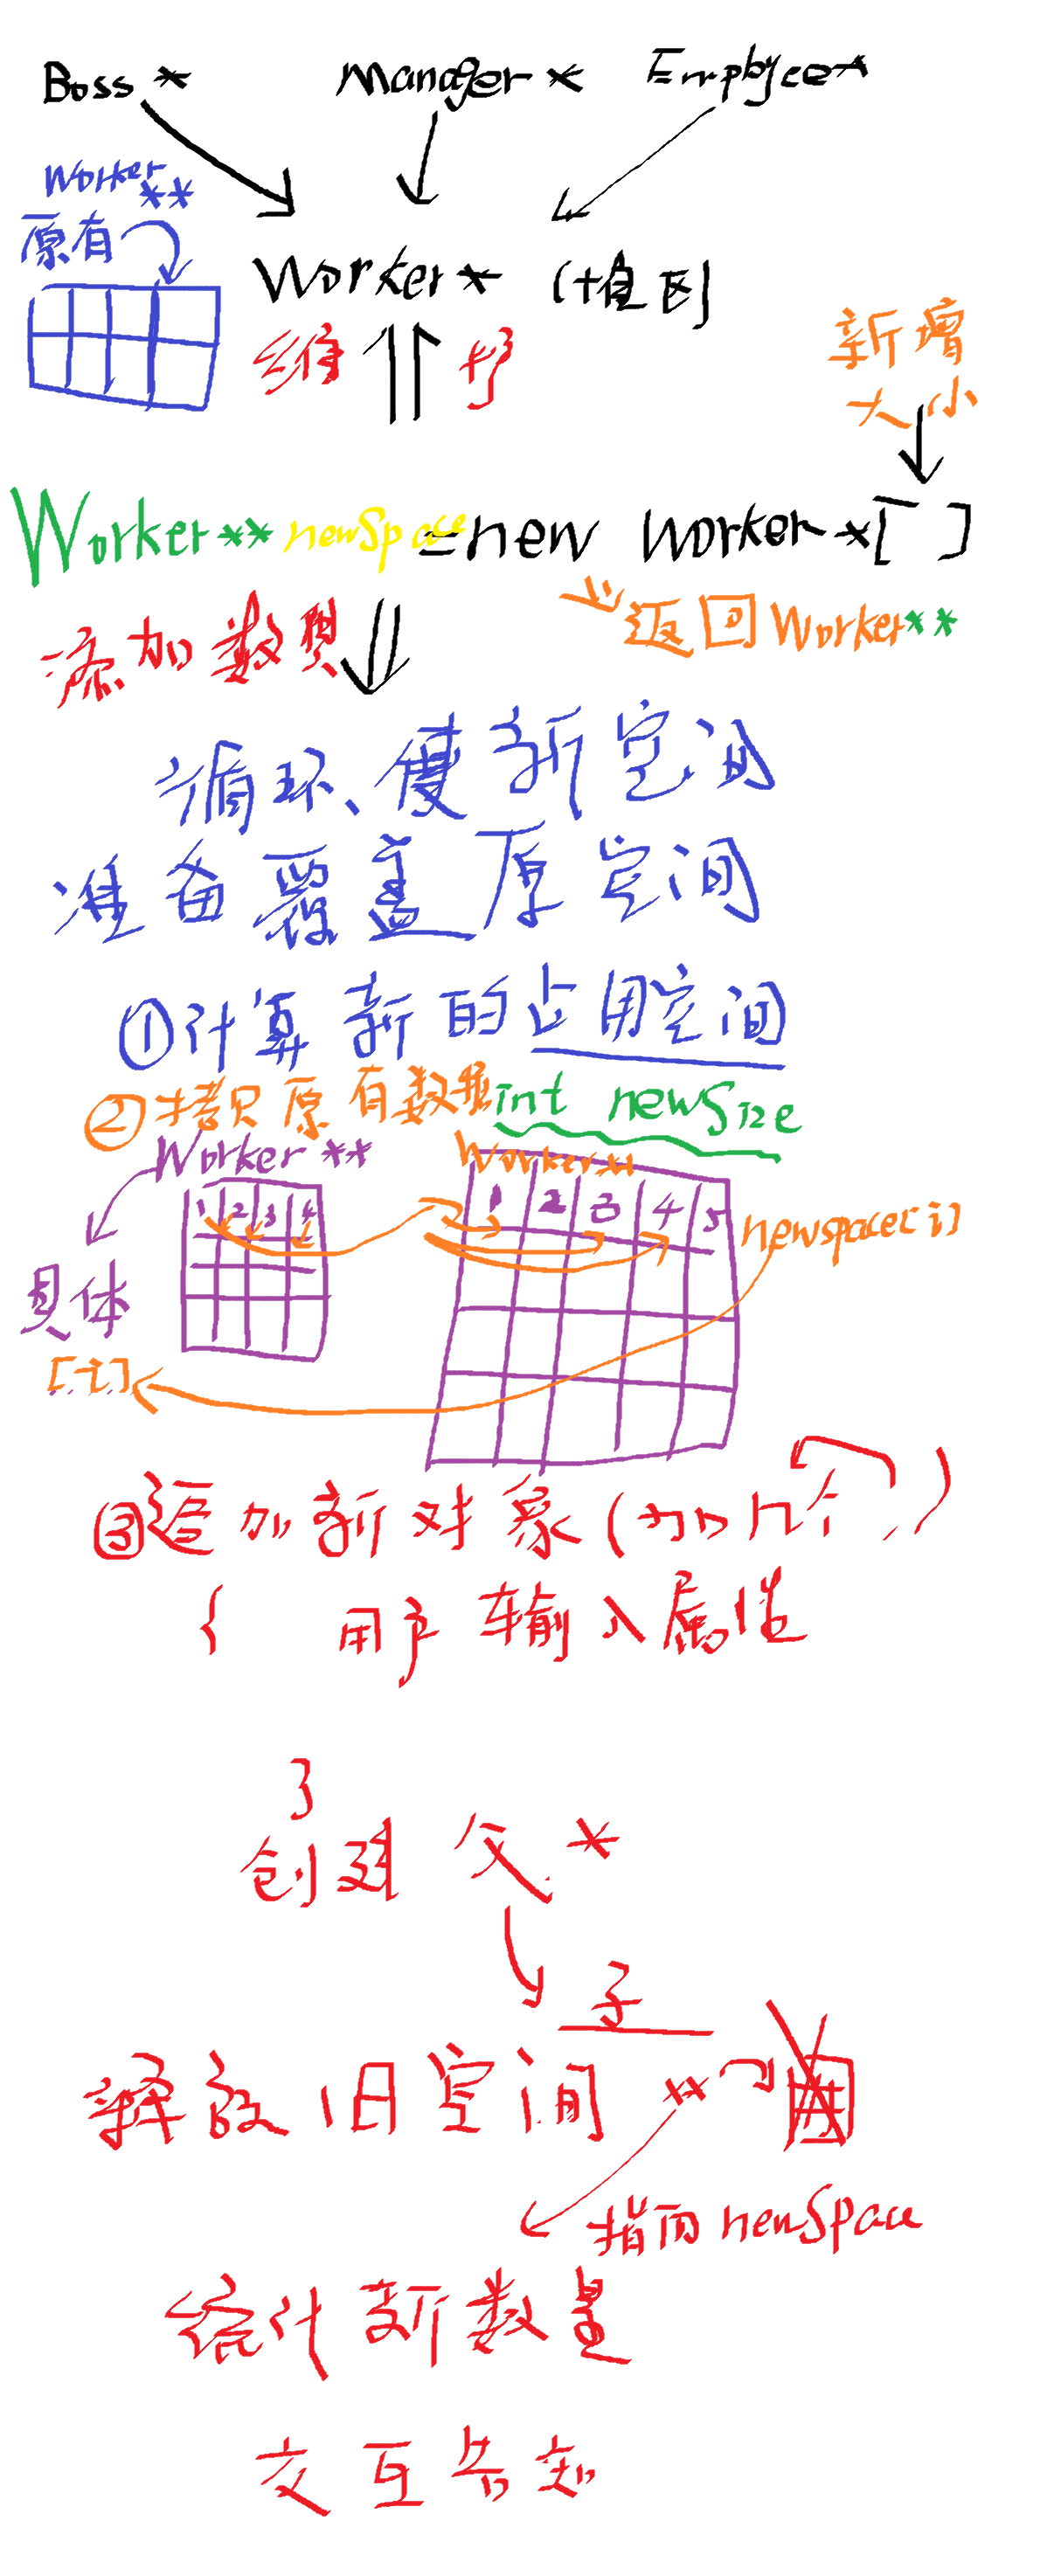 Boss * Manager * Employee *
Worker **
原有
Worker * (堆区)
维 护
新增
大小
Worker** newSpace = new Worker *[ ]
添加数据
返回Worker**
循环、使新空间
准备覆盖原空间
①计算新的占用空间
②拷贝原有数据 int newSize
Worker ** Worker **
1 2 3 4
1 2 3 4 5
newspace[i]
具体
[i]
③追加新对象(加几个)
{ 用户输入属性
}
创建 父 *
子
释放旧空间 **
指向 newSpace
统计新数量
交互告知